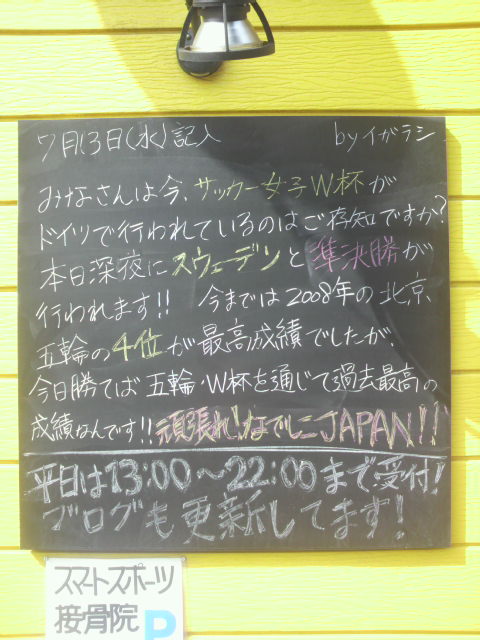 7月13日(水)記入 byイガラシ
みなさんは今、サッカー女子W杯が
ドイツで行われているのはご存知ですか?
本日深夜にスウェーデンと準決勝が
行われます!! 今までは2008年の北京
五輪の4位が最高成績でしたが、
今日勝てば五輪・W杯を通じて過去最高の
成績なんです!!頑張れ!なでしこJAPAN!!
平日は13:00~22:00まで受付!
ブログも更新してます!
スマートスポーツ
接骨院 P